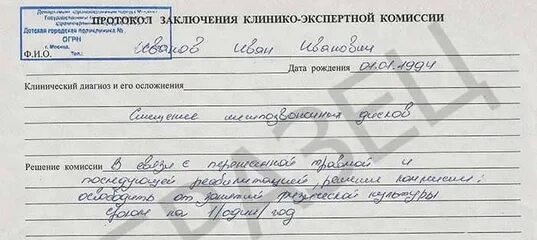 ПРОТОКОЛ ЗАКЛЮЧЕНИЯ КЛИНИКО-ЭКСПЕРТНОЙ КОМИССИИ
Департамент здравоохранения города Москвы
Государственное
Детская городская поликлиника №
ОГРН
г. Москва, Тел.:
Ф.И.О. Иванов Иван Иванович
Дата рождения 01.01.1994
Клинический диагноз и его осложнения
Смещение межпозвоночных дисков
Решение комиссии В связи с перенесенной травмой и
последующей реабилитацией, решение комиссии:
освободить от занятий физической культуры
сроком на 1/один/год
ОБРАЗЕЦ